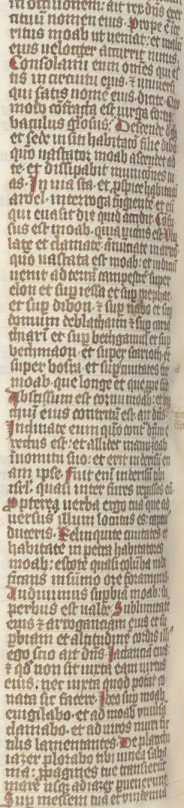 in occisionem: ait rex dn̄s exer
cituū nomen eius. Prope ē inte
ritus moab ut veniat: et malū
eius velociter accurret nimis.
Consolamini eum omēs qui es
tis in circuitu eius. et universi
qui scitis nomē eius. dicite. Quo
modo cōfracta est virga fortis
baculus gl̄osus. Descende de
et sede in siti habitatō filie dibō
qm̄ vastator moab ascendet ad
te: et dissipabit munitiones tu
as. In via sta. et pspice habitatio
aroer. interroga fugiētē et eū
qui evasit dic quid accidit. Cōfu
sus est moab. qm̄ victus est. Ulu
late et clamate. ānūciate in arnō
qm̄ vastata est moab: et iudiciū
venit ad terrā campestrē super
elon et sup̄ iessa et sup̄ mephaat
et sup̄ dibon. et sup̄ nabo et sup̄
domum deblathaim et sup̄ cariā
thiari et sup̄ bethgamul et sup̄
bethmaon. et super carioth. et
super bosra et sup̄ civitates terre
moab. que longe et que ppe sūt
Abscissum est cornu moab. et bra
chiū eius contritū est: ait dn̄s.
Inebriate eum qm̄ cont̄ dn̄m e
rectus est. et allidet manū moab
ī vomitu suo: et erit ī derisū eti
am ipse. Fuit enī ī derisū tibi
isrl̄. quasi inter fures repisses eū.
Propterea verba ergo tua que ad
versus illum locutus es: captivus
duceris. Relinquite civitates et
habitate in petra habitatores
moab: estote quasi colūba nidi
ficans in sūmo ore foraminis.
Audivimus supbiā moab: su
perbus est valde. Sublimitatē
eius et arrogantiam eius et su
pbiam et altitudinē cordis illi
ego scio ait dn̄s. Iactantiā eius
et qd̄ non sit iuxta eam virtus
eius. nec iuxta quod poterat co
nata sit facere. Ideo sup moab
eiulabo. et ad moab universā
clamabo. et ad viros muri fic
tilis lamentantes. De planctu
iazer plorabo tibi vinea saba
ma: ppagines tue transierūt
mare usq3 ad mare iazer pvenerunt
Sup messem tuā et vindemiā